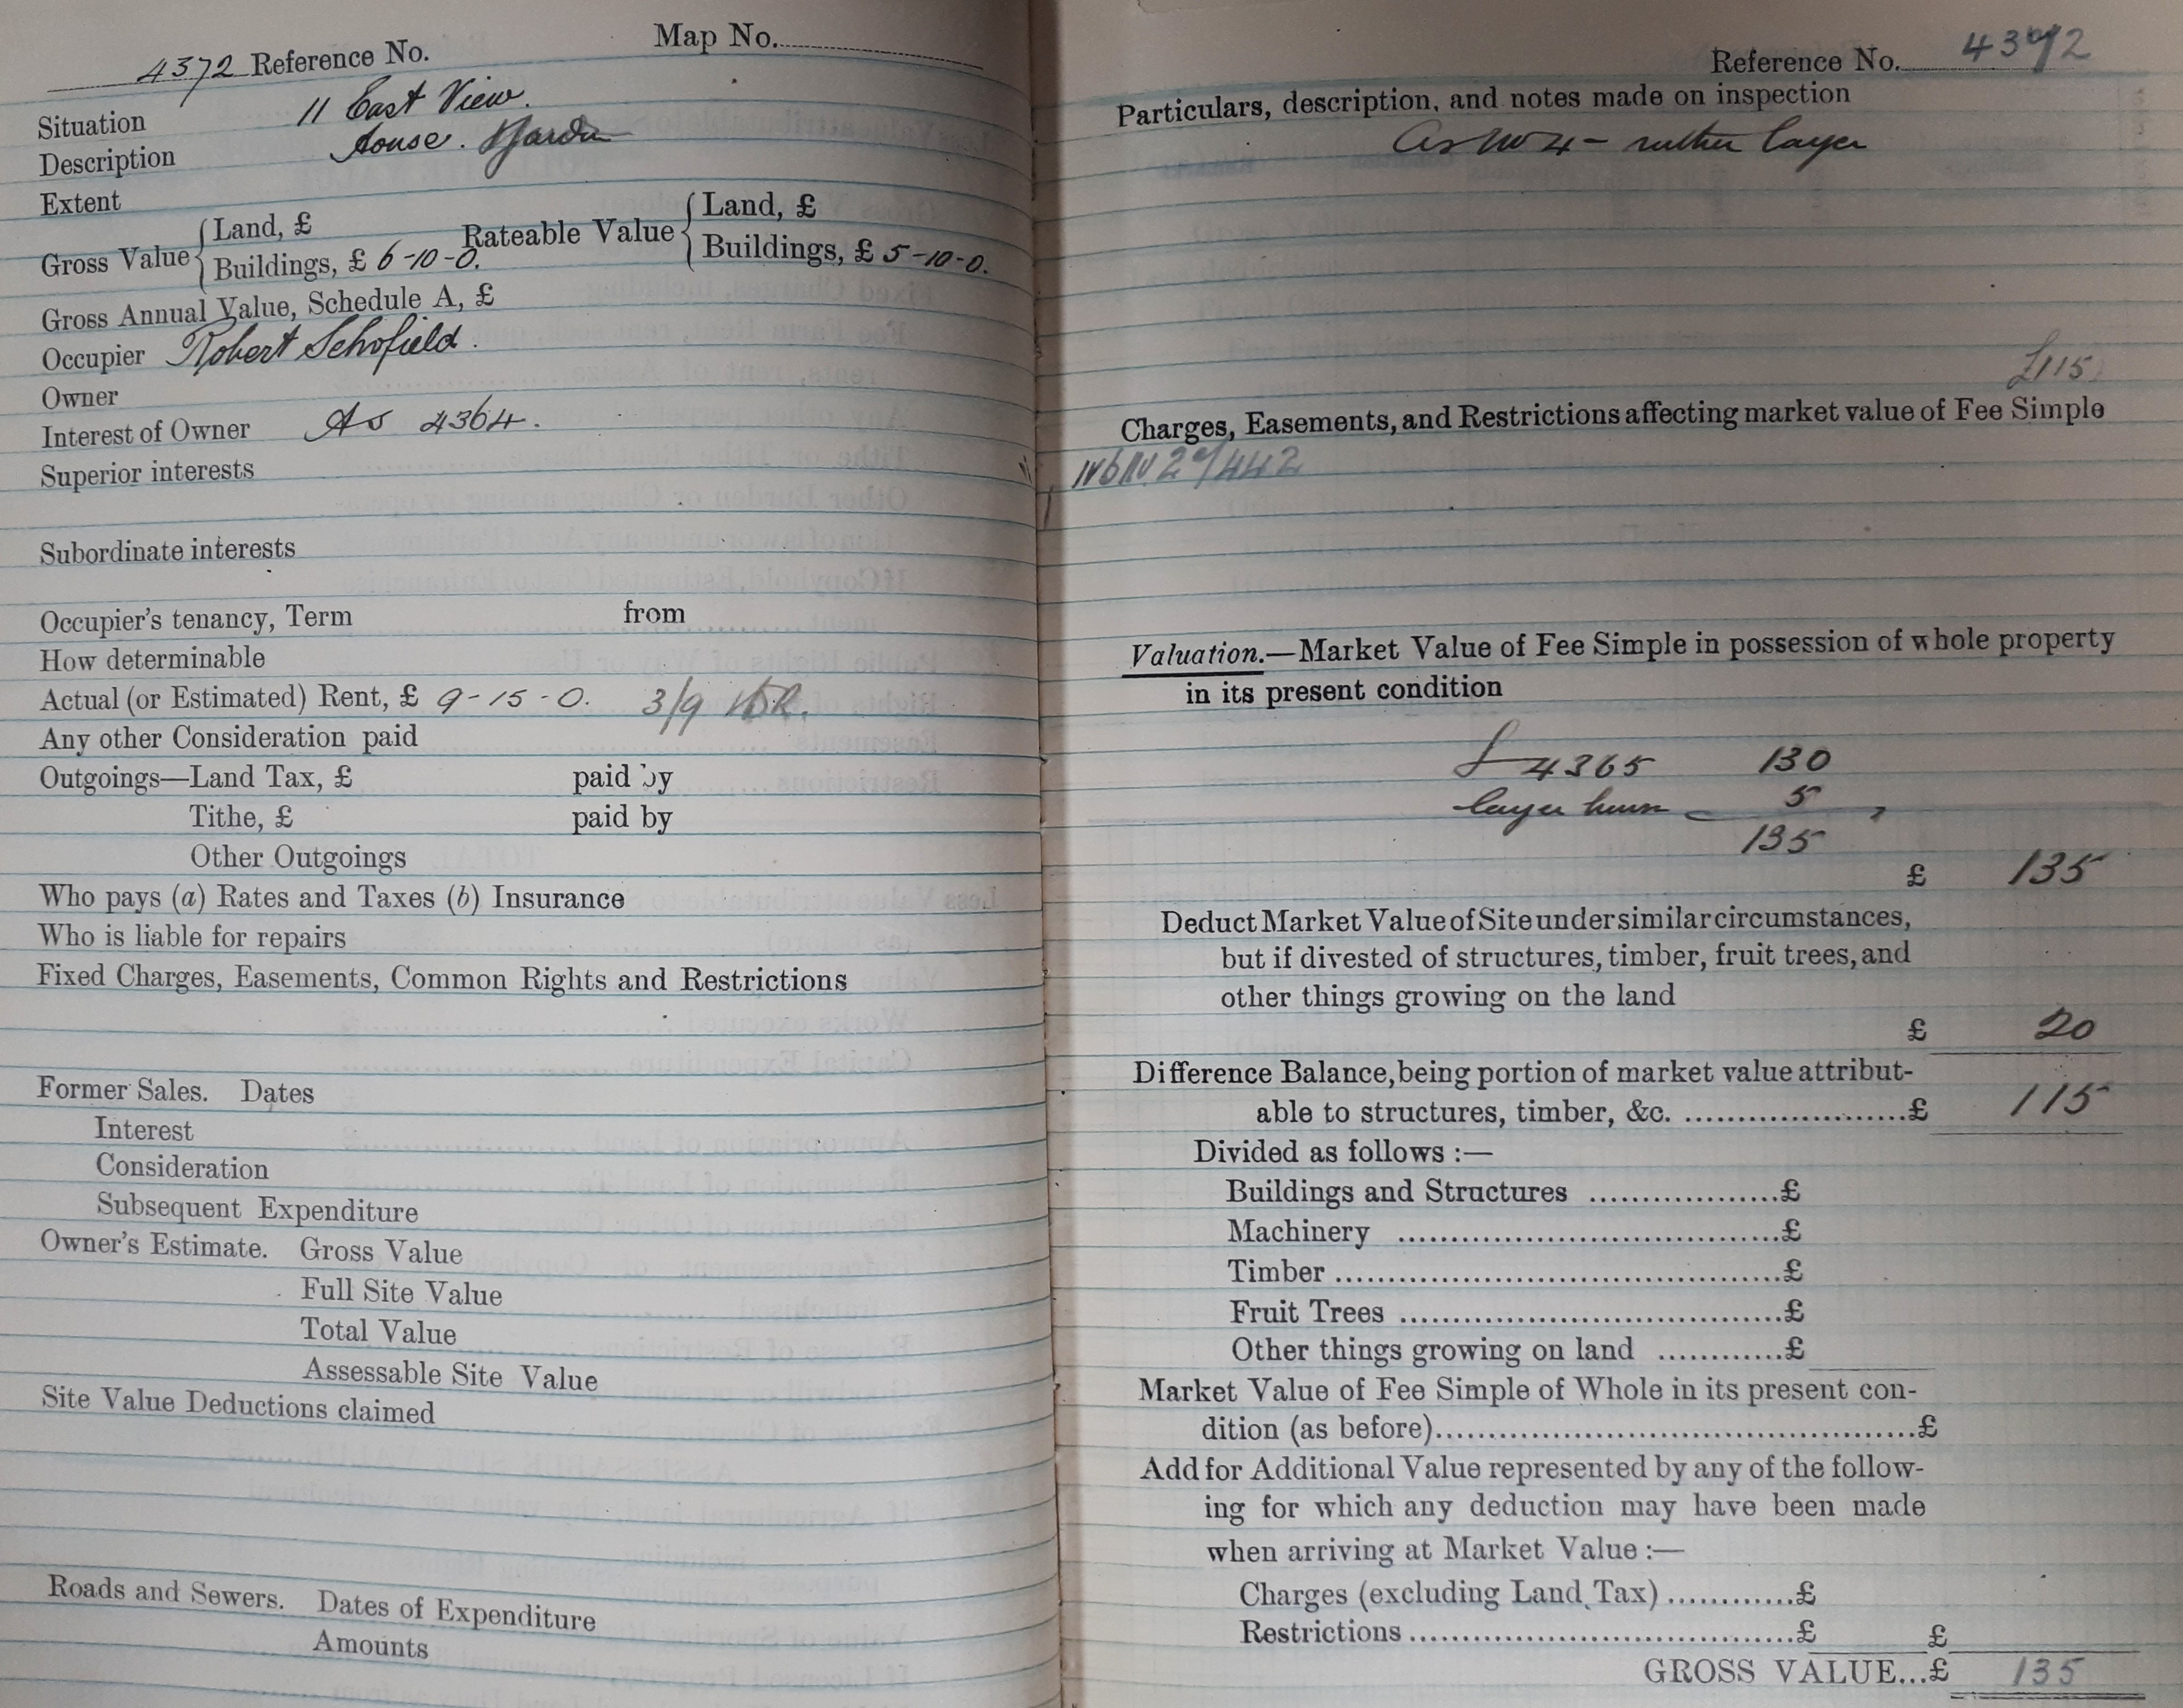 4372 Reference No. Map No.
Situation 11 East View.
Description House. Garden
Extent
Gross Value { Land, £ Rateable Value { Land, £
Buildings, £ 6-10-0. Buildings, £ 5-10-0.
Gross Annual Value, Schedule A, £
Occupier Robert Schofield.
Owner
Interest of Owner As 4364.
Superior interests
Subordinate interests
Occupier's tenancy, Term from
How determinable
Actual (or Estimated) Rent, £ 9-15-0. 3/9
Any other Consideration paid
Outgoings—Land Tax, £ paid by
Tithe, £ paid by
Other Outgoings
Who pays (a) Rates and Taxes (b) Insurance
Who is liable for repairs
Fixed Charges, Easements, Common Rights and Restrictions
Former Sales. Dates
Interest
Consideration
Subsequent Expenditure
Owner's Estimate. Gross Value
Full Site Value
Total Value
Assessable Site Value
Site Value Deductions claimed
Roads and Sewers. Dates of Expenditure
Amounts
Reference No. 4372
Particulars, description, and notes made on inspection
As No 4 - rather larger
£115
Charges, Easements, and Restrictions affecting market value of Fee Simple
Valuation.—Market Value of Fee Simple in possession of whole property
in its present condition
4365 130
larger house 5
135
£ 135
Deduct Market Value of Site under similar circumstances,
but if divested of structures, timber, fruit trees, and
other things growing on the land
£ 20
Difference Balance, being portion of market value attribut-
able to structures, timber, &c. ....................£ 115
Divided as follows :—
Buildings and Structures ..................£
Machinery ....................................£
Timber..........................................£
Fruit Trees ....................................£
Other things growing on land ............£
Market Value of Fee Simple of Whole in its present con-
dition (as before)..............................................£
Add for Additional Value represented by any of the follow-
ing for which any deduction may have been made
when arriving at Market Value :—
Charges (excluding Land Tax)............£
Restrictions.....................................£ £
GROSS VALUE...£ 135